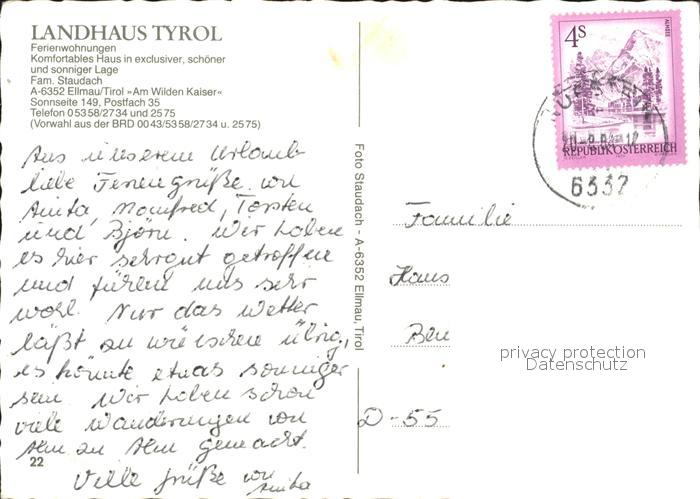 LANDHAUS TYROL
Ferienwohnungen
Komfortables Haus in exclusiver, schöner
und sonniger Lage
Fam. Staudach
A-6352 Ellmau/Tirol »Am Wilden Kaiser«
Sonnseite 149, Postfach 35
Telefon 0 53 58/27 34 und 25 75
(Vorwahl aus der BRD 00 43/53 58/27 34 u. 25 75)
Aus unserem Urlaub
liebe Feriengrüße von
Anita, Manfred, Torsten
und Björn. Wir haben
es hier sehr gut getroffen
und fühlen uns sehr
wohl. Nur das Wetter
läßt zu wünschen übrig,
es könnte etwas sonniger
sein. Wir haben schon
viele Wanderungen von
Alm zu Alm gemacht.
22
Viele Grüße von
Anita
Foto Staudach - A-6352 Ellmau, Tirol
4S
ALMSEE
REPUBLIK ÖSTERREICH
6332
Familie
Hans
D-55
privacy protection
Datenschutz